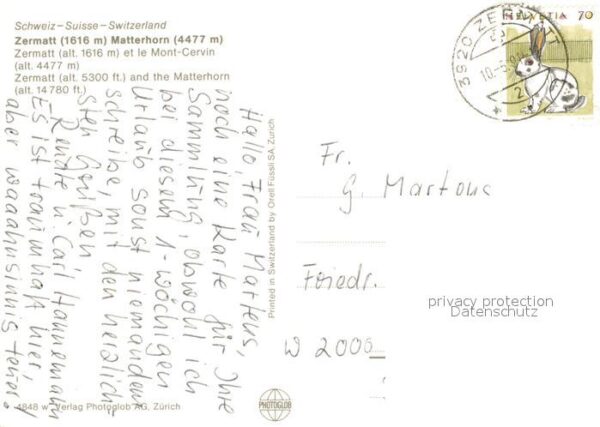 Schweiz – Suisse – Switzerland
Zermatt (1616 m) Matterhorn (4477 m)
Zermatt (alt. 1616 m) et le Mont-Cervin
(alt. 4477 m)
Zermatt (alt. 5300 ft.) and the Matterhorn
(alt. 14780 ft.)
Hallo, Frau Martens,
noch eine Karte für Ihre
Sammlung, obwohl ich
bei diesem 1-wöchigen
Urlaub sonst niemandem
schreibe, mit den herzlich-
sten Grüßen
Renate u. Carl Hannemann
Es ist traumhaft hier,
aber waaahnsinnis teuer!
Printed in Switzerland by Orell Füssli SA Zurich
4848 w Verlag Photoglob AG, Zürich
PHOTOGLOB
HELVETIA 70
3920 ZERMATT
Fr.
G. Martens
Friedr.
W 2000
privacy protection
Datenschutz